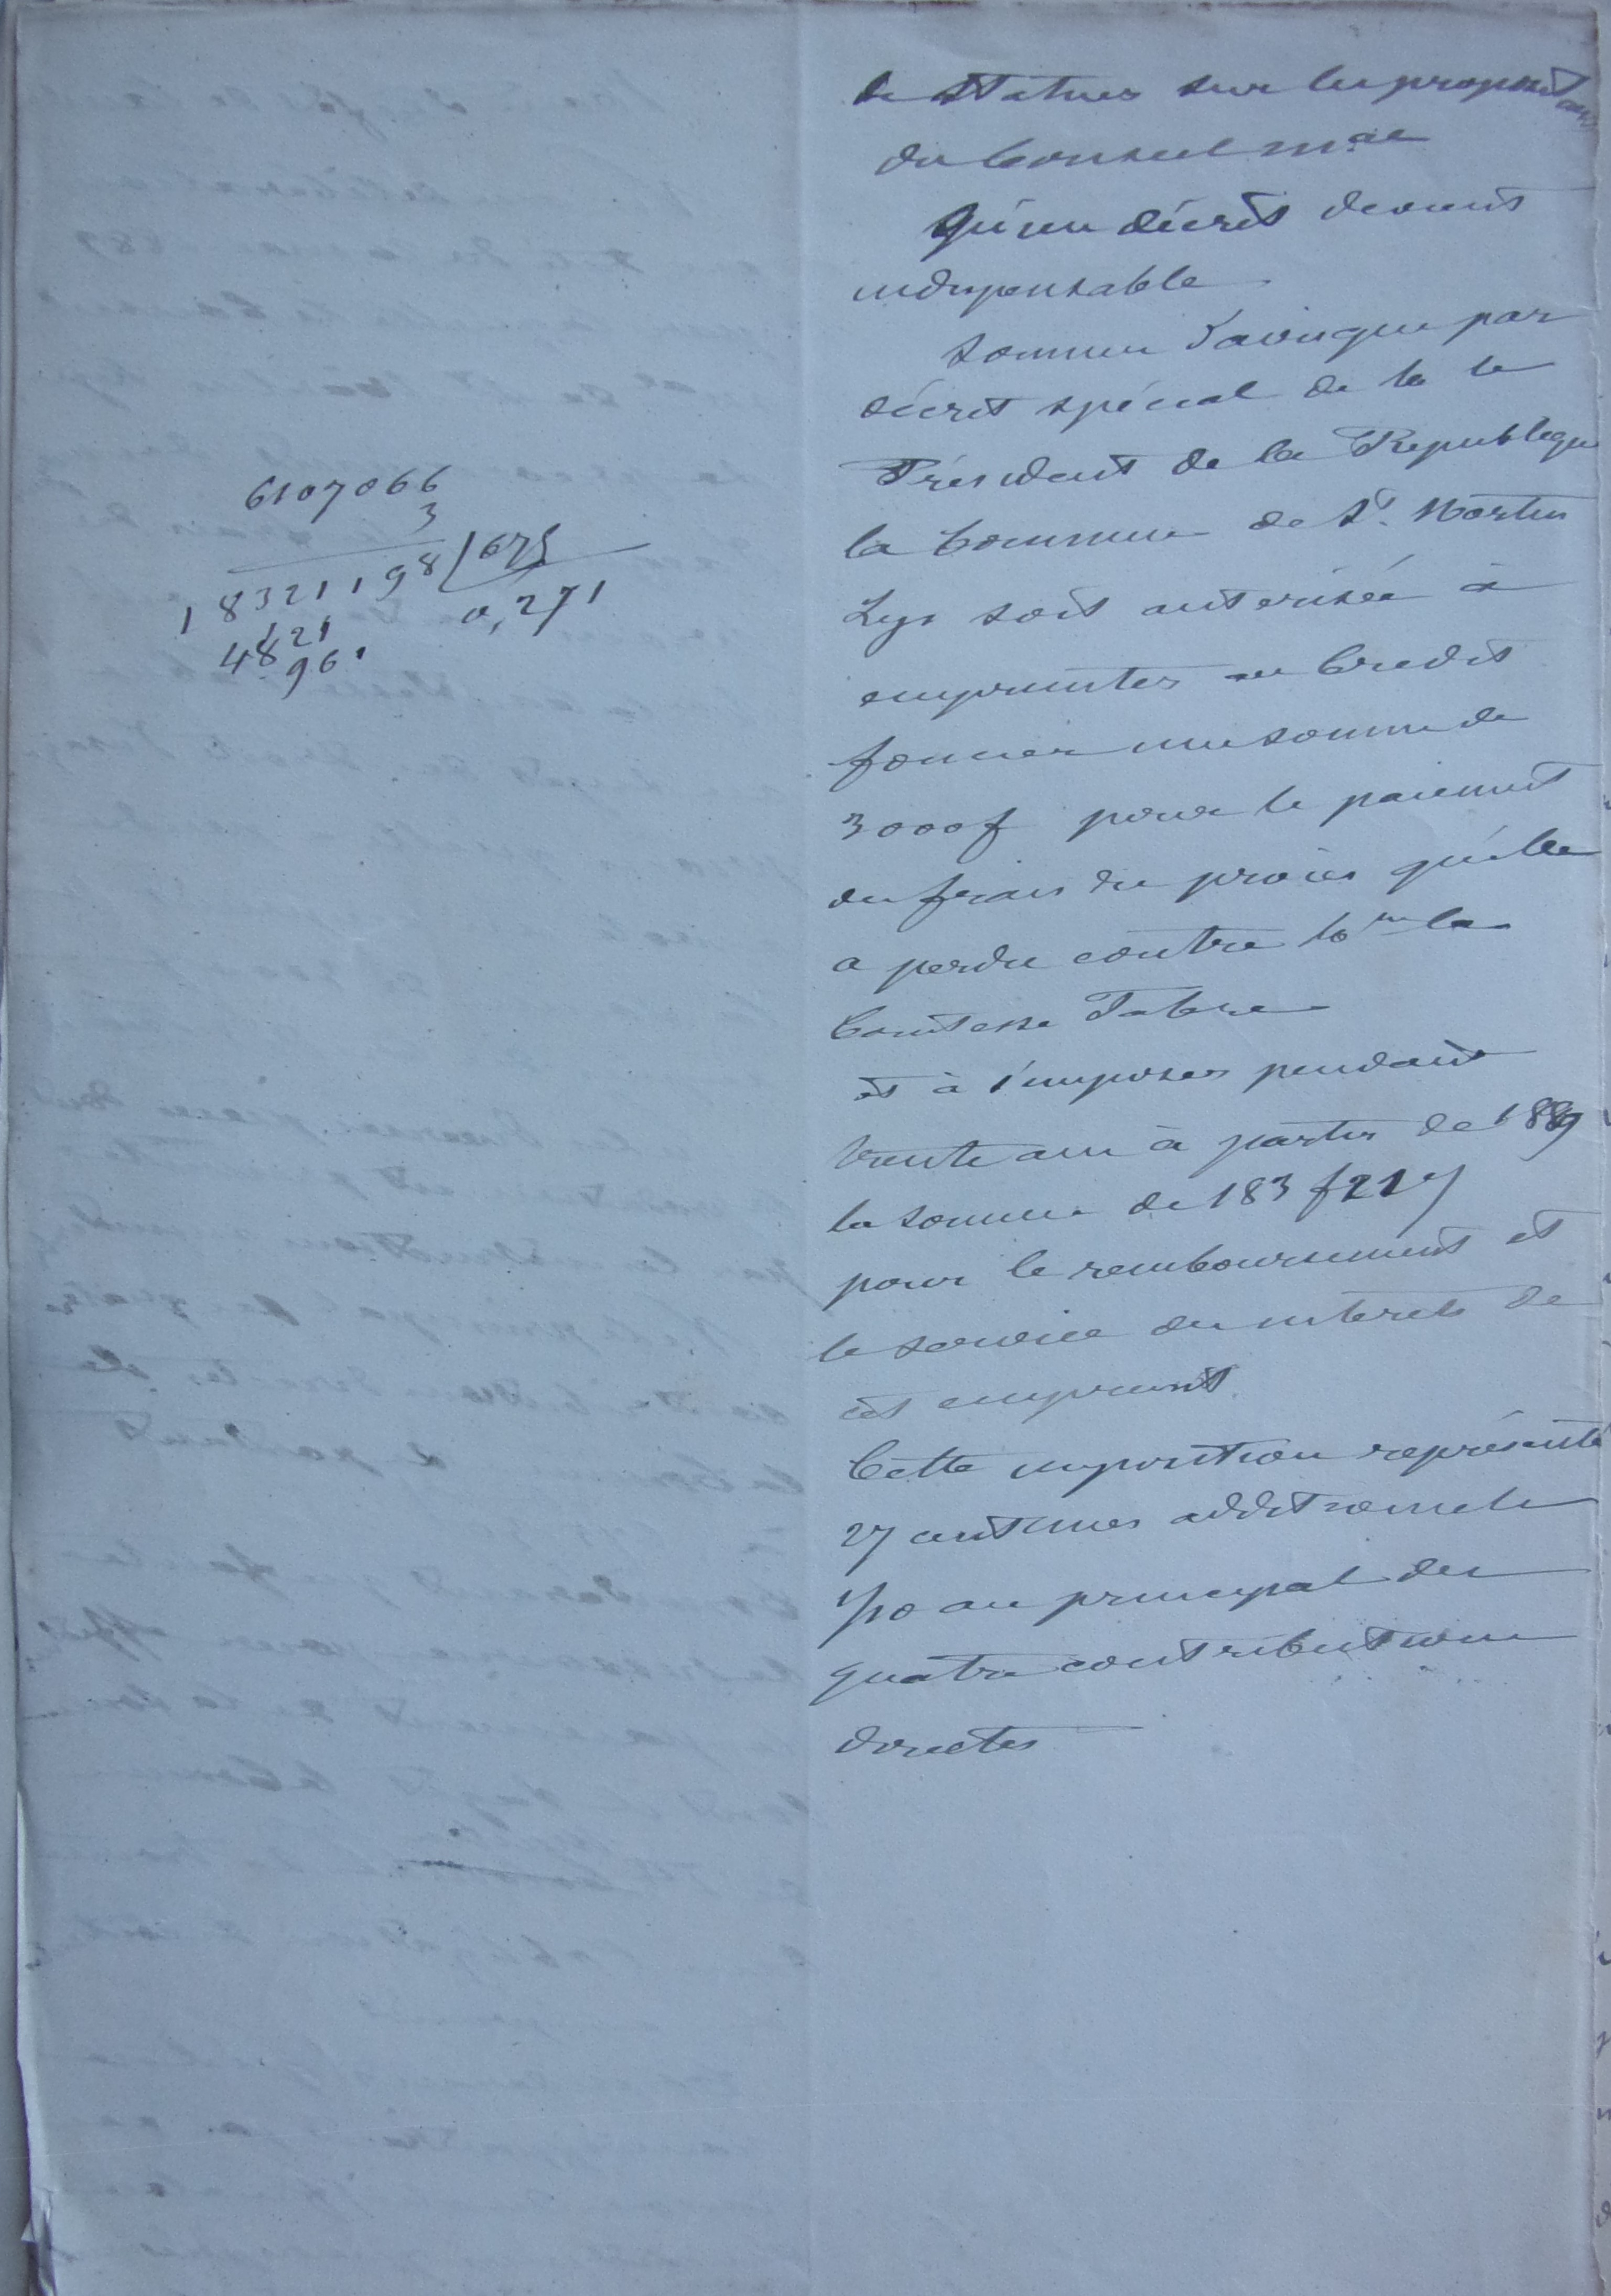 6107066
3
18321198 675
4821 0,271
96
de statuer sur les propositions
du Conseil m.al
Qu'un décret devient
indispensable
Sommes d'avis que par
décret spécial de M le
Président de la Republique
la Commune de St. Martin
Lys soit autorisée à
emprunter au Credit
foncier une somme de
3000f pour le paiement
des frais du procès qu'elle
a perdu contre Mme la
Comtesse Fabre
et à s'imposer pendant
trente ans à partir de 1889
la somme de 183 f 21
pour le remboursement et
le service des interets de
cet emprunt
Cette imposition représente
27 centimes additionnels
1/10 au principal des
quatre contributions
directes